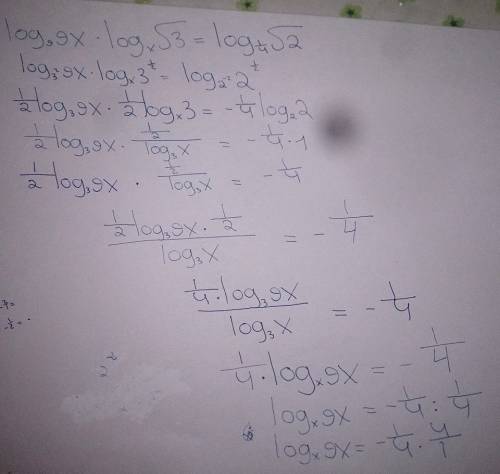 log₉9x · logₓ√3 = log_¼√2
log₃²9x · logₓ3^½ = log₂⁻²2^½
½log₃9x · ½logₓ3 = -¼log₂2
½log₃9x · ½/log₃x = -¼·1
½log₃9x · ½/log₃x = -¼
(½log₃9x · ½)/log₃x = -¼
(¼·log₃9x)/log₃x = -¼
¼·logₓ9x = -¼
logₓ9x = -¼ : ¼
logₓ9x = -¼ · 4/1